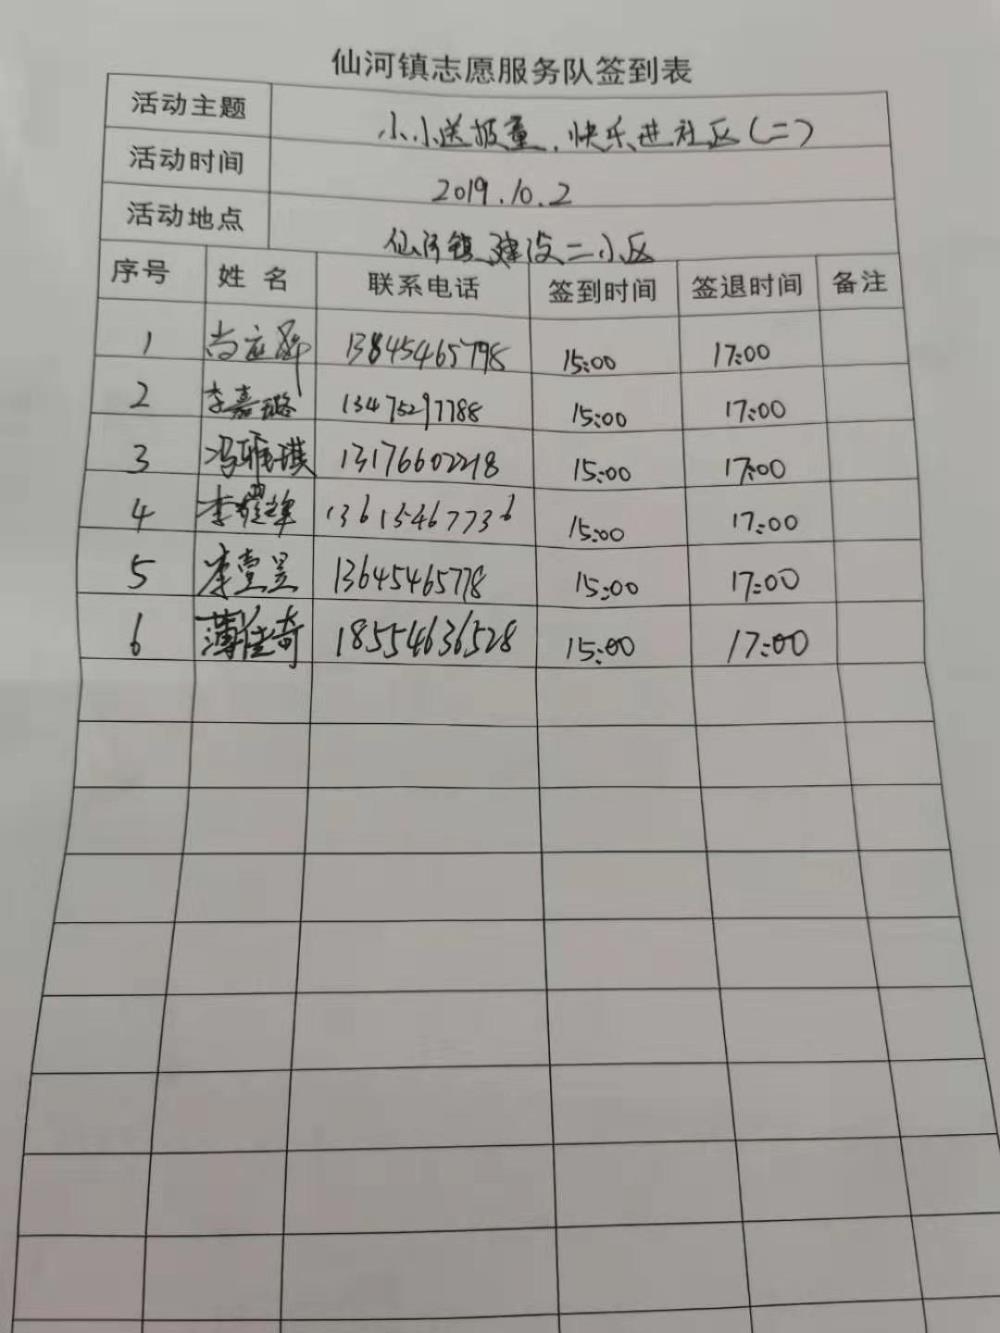 仙河镇志愿服务队签到表
活动主题 小小送报童，快乐进社区(二)
活动时间 2019.10.2
活动地点 仙河镇建设二小区
序号 姓名 联系电话 签到时间 签退时间 备注
1 13845465798 15:00 17:00
2 李嘉璐 13475297788 15:00 17:00
3 冯雅琪 13176602218 15:00 17:00
4 李 13615467736 15:00 17:00
5 李 13645465778 15:00 17:00
6 薄佳奇 18554636528 15:00 17:00